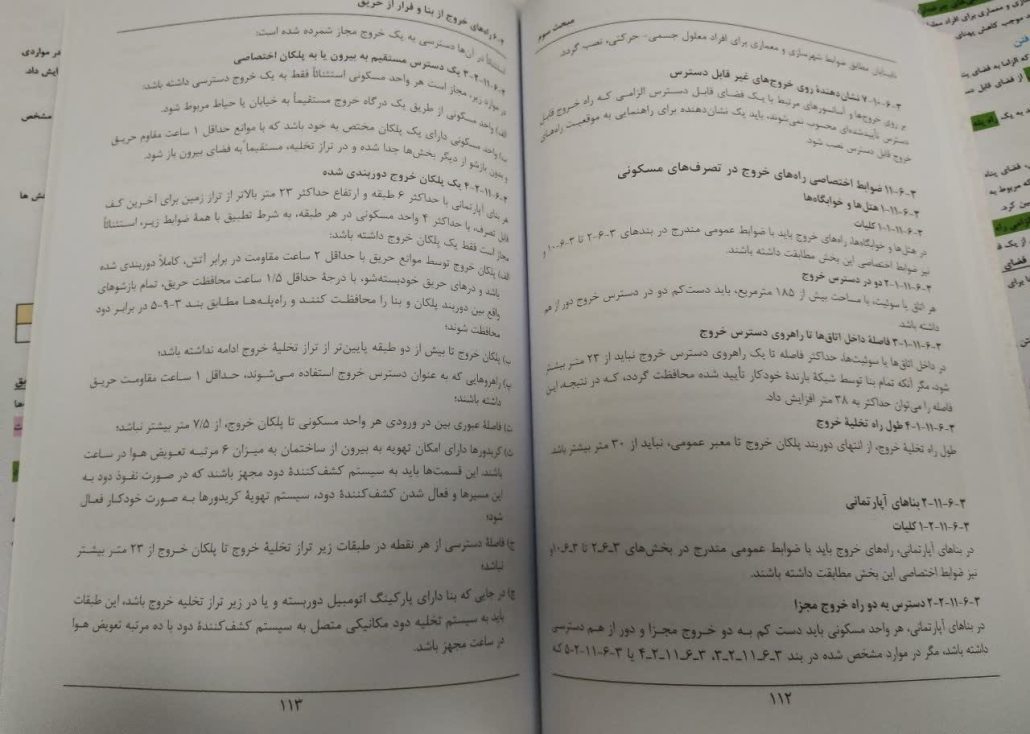 مبحث سوم
نابینایان مطابق ضوابط شهرسازی و معماری برای افراد معلول جسمی- حرکتی، نصب گردد.
۳-۶-۱۰-۷ نشان‌دهندهٔ روی خروج‌های غیر قابل دسترس
بر روی خروج‌ها و آسانسورهای مرتبط با یک فضای قابل دسترس الزامی که راه خروج قابل
دسترس تأییدشده‌ای محسوب نمی‌شوند، باید یک نشان‌دهنده برای راهنمایی به موقعیت راه‌های
خروج قابل دسترس نصب شود.
۳-۶-۱۱ ضوابط اختصاصی راه‌های خروج در تصرف‌های مسکونی
۳-۶-۱۱-۱ هتل‌ها و خوابگاه‌ها
۳-۶-۱۱-۱-۱ کلیات
در هتل‌ها و خوابگاه‌ها، راه‌های خروج باید با ضوابط عمومی مندرج در بندهای ۳-۶-۲ تا ۳-۶-۱۰ و
نیز ضوابط اختصاصی این بخش مطابقت داشته باشند.
۳-۶-۱۱-۱-۲ دو در دسترس خروج
هر اتاق یا سوئیت، با مساحت بیش از ۱۸۵ مترمربع، باید دست‌کم دو در دسترس خروج دور از هم
داشته باشد.
۳-۶-۱۱-۱-۳ فاصلهٔ داخل اتاق‌ها تا راهروی دسترس خروج
در داخل اتاق‌ها یا سوئیت‌ها، حداکثر فاصله تا یک راهروی دسترس خروج نباید از ۲۳ متر بیشتر
شود، مگر آنکه تمام بنا توسط شبکهٔ بارندهٔ خودکار تأیید شده محافظت گردد، که در نتیجه، این
فاصله را می‌توان حداکثر به ۳۸ متر افزایش داد.
۳-۶-۱۱-۱-۴ طول راه تخلیهٔ خروج
طول راه تخلیهٔ خروج، از انتهای دوربند پلکان خروج تا معبر عمومی، نباید از ۳۰ متر بیشتر باشد.
۳-۶-۱۱-۲ بناهای آپارتمانی
۳-۶-۱۱-۲-۱ کلیات
در بناهای آپارتمانی، راه‌های خروج باید با ضوابط عمومی مندرج در بخش‌های ۳-۶-۲ تا ۳-۶-۱۰ و
نیز ضوابط اختصاصی این بخش مطابقت داشته باشند.
۳-۶-۱۱-۲-۲ دسترس به دو راه خروج مجزا
در بناهای آپارتمانی، هر واحد مسکونی باید دست کم به دو خروج مجزا و دور از هم دسترسی
داشته باشد، مگر در موارد مشخص شده در بند ۳-۶-۱۱-۲-۳، ۳-۶-۱۱-۲-۴ یا ۳-۶-۱۱-۲-۵ که
۱۱۲
۳-۶ راه‌های خروج از بنا و فرار از حریق
استثنائاً در آن‌ها دسترسی به یک خروج مجاز شمرده شده است:
۳-۶-۱۱-۲-۳ یک دسترس مستقیم به بیرون یا به پلکان اختصاصی
در موارد زیر، مجاز است هر واحد مسکونی استثنائاً فقط به یک خروج دسترسی داشته باشد:
الف) واحد مسکونی از طریق یک درگاه خروج مستقیماً به خیابان یا حیاط مربوط شود.
ب) واحد مسکونی دارای یک پلکان مختص به خود باشد که با موانع حداقل ۱ ساعت مقاوم حریق
و بدون بازشو از دیگر بخش‌ها جدا شده و در تراز تخلیه، مستقیماً به فضای بیرون باز شود.
۳-۶-۱۱-۲-۴ یک پلکان خروج دوربندی شده
هر بنای آپارتمانی با حداکثر ۶ طبقه و ارتفاع حداکثر ۲۳ متر بالاتر از تراز زمین برای آخرین کف
قابل تصرف، با حداکثر ۴ واحد مسکونی در هر طبقه، به شرط تطبیق با همهٔ ضوابط زیر، استثنائاً
مجاز است فقط یک پلکان خروج داشته باشد:
الف) پلکان خروج توسط موانع حریق با حداقل ۲ ساعت مقاومت در برابر آتش، کاملاً دوربندی شده
باشد و درهای حریق خودبسته‌شو، با درجهٔ حداقل ۱/۵ ساعت محافظت حریق، تمام بازشوهای
واقع بین دوربند پلکان و بنا را محافظت کنند و راه‌پله‌ها مطابق بند ۳-۹-۵ در برابر دود
محافظت شوند؛
ب) پلکان خروج تا بیش از دو طبقه پایین‌تر از تراز تخلیهٔ خروج ادامه نداشته باشد؛
پ) راهروهایی که به عنوان دسترس خروج استفاده می‌شوند، حداقل ۱ ساعت مقاومت حریق
داشته باشند؛
ت) فاصلهٔ عبوری بین در ورودی هر واحد مسکونی تا پلکان خروج، از ۷/۵ متر بیشتر نباشد؛
ث) کریدورها دارای امکان تهویه به بیرون از ساختمان به میزان ۶ مرتبه تعویض هوا در ساعت
باشند. این قسمت‌ها باید به سیستم کشف‌کنندهٔ دود مجهز باشند که در صورت نفوذ دود به
این مسیرها و فعال شدن کشف‌کنندهٔ دود، سیستم تهویهٔ کریدورها به صورت خودکار فعال
شود؛
ج) فاصلهٔ دسترسی از هر نقطه در طبقات زیر تراز تخلیهٔ خروج تا پلکان خروج از ۲۳ متر بیشتر
نباشد؛
چ) در جایی که بنا دارای پارکینگ اتومبیل دوربسته و یا در زیر تراز تخلیه خروج باشد، این طبقات
باید به سیستم تخلیه دود مکانیکی متصل به سیستم کشف‌کنندهٔ دود با ده مرتبه تعویض هوا
در ساعت مجهز باشد.
۱۱۳